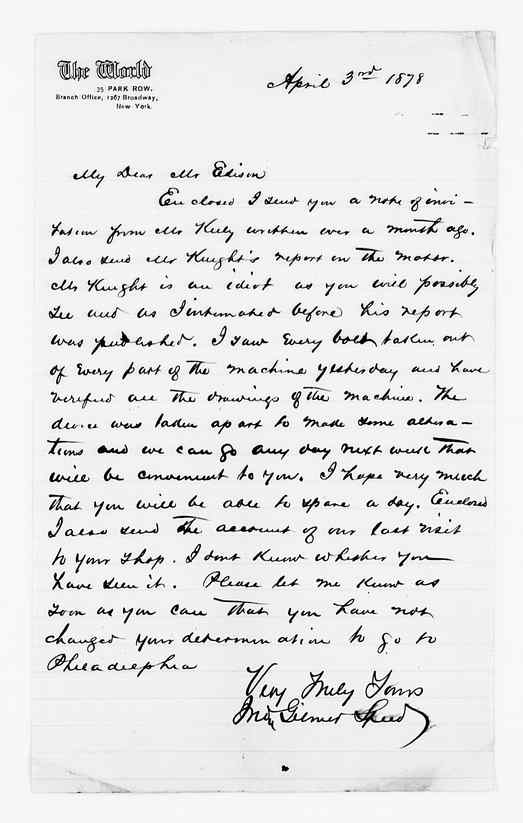 The World
35 PARK ROW.
Branch Office, 1267 Broadway,
New York.
April 3rd 1878
My Dear Mr Edison
Enclosed I send you a note of invi-
tation from Mr Keely written over a month ago.
I also send Mr Knight's report on the motor.
Mr Knight is an idiot as you will possibly
see and as I intimated before his report
was published. I saw every bolt taken out
of every part of the machine yesterday and have
verified all the drawings of the machine. The
device was taken apart to make some altera-
tions and we can go any day next week that
will be convenient to you. I hope very much
that you will be able to spare a day. Enclosed
I also send the account of our last visit
to your shop. I dont know whether you
have seen it. Please let me know as
soon as you can that you have not
changed your determination to go to
Philadelphia
Very Truly Yours
Jno Gilmer Speed